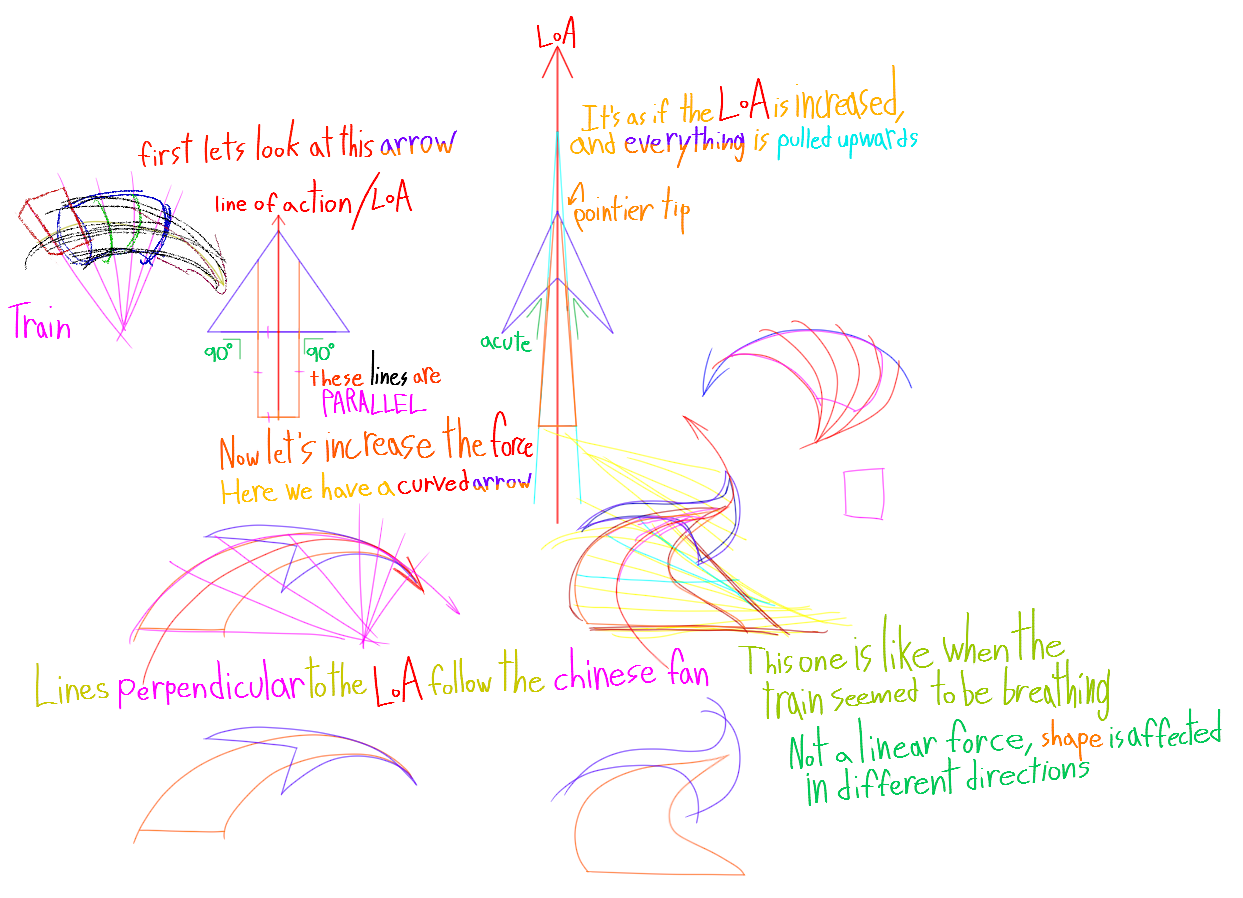 LoA
It's as if the LoA is increased,
and everything is pulled upwards
first lets look at this arrow
line of action/LoA
pointier tip
Train
90°
90°
acute
these lines are
PARALLEL
Now let's increase the force
Here we have a curved arrow
Lines perpendicular to the LoA follow the chinese fan
This one is like when the
train seemed to be breathing
Not a linear force, shape is affected
in different directions